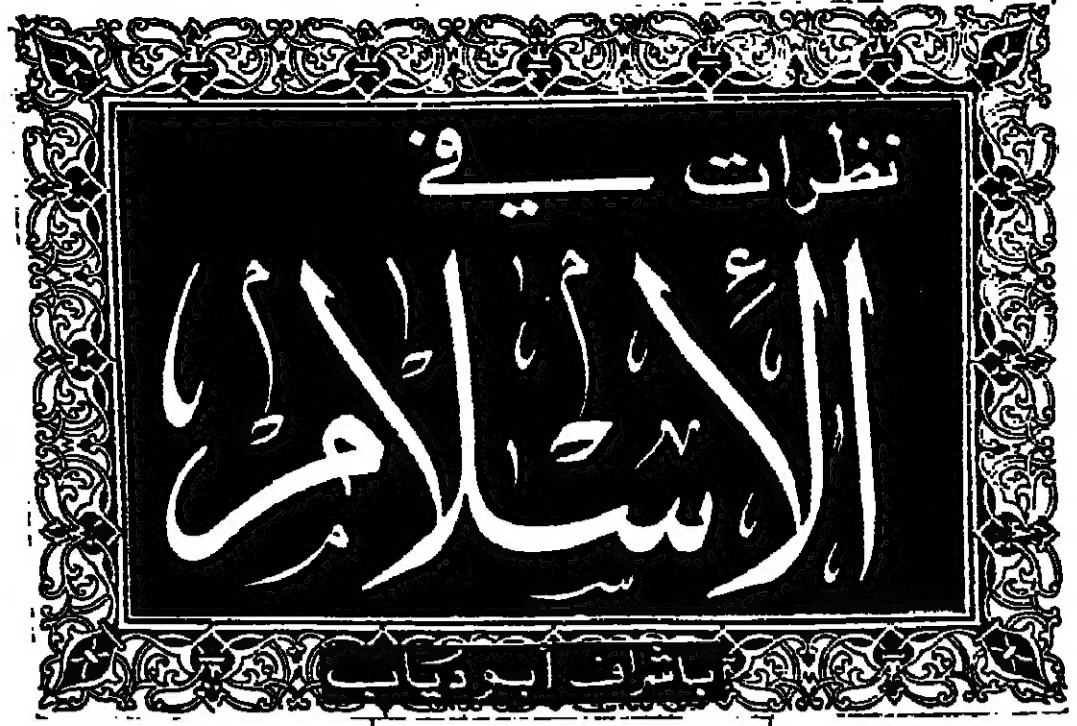 نظرات في
الإسلام
بإشراف أبو دياب